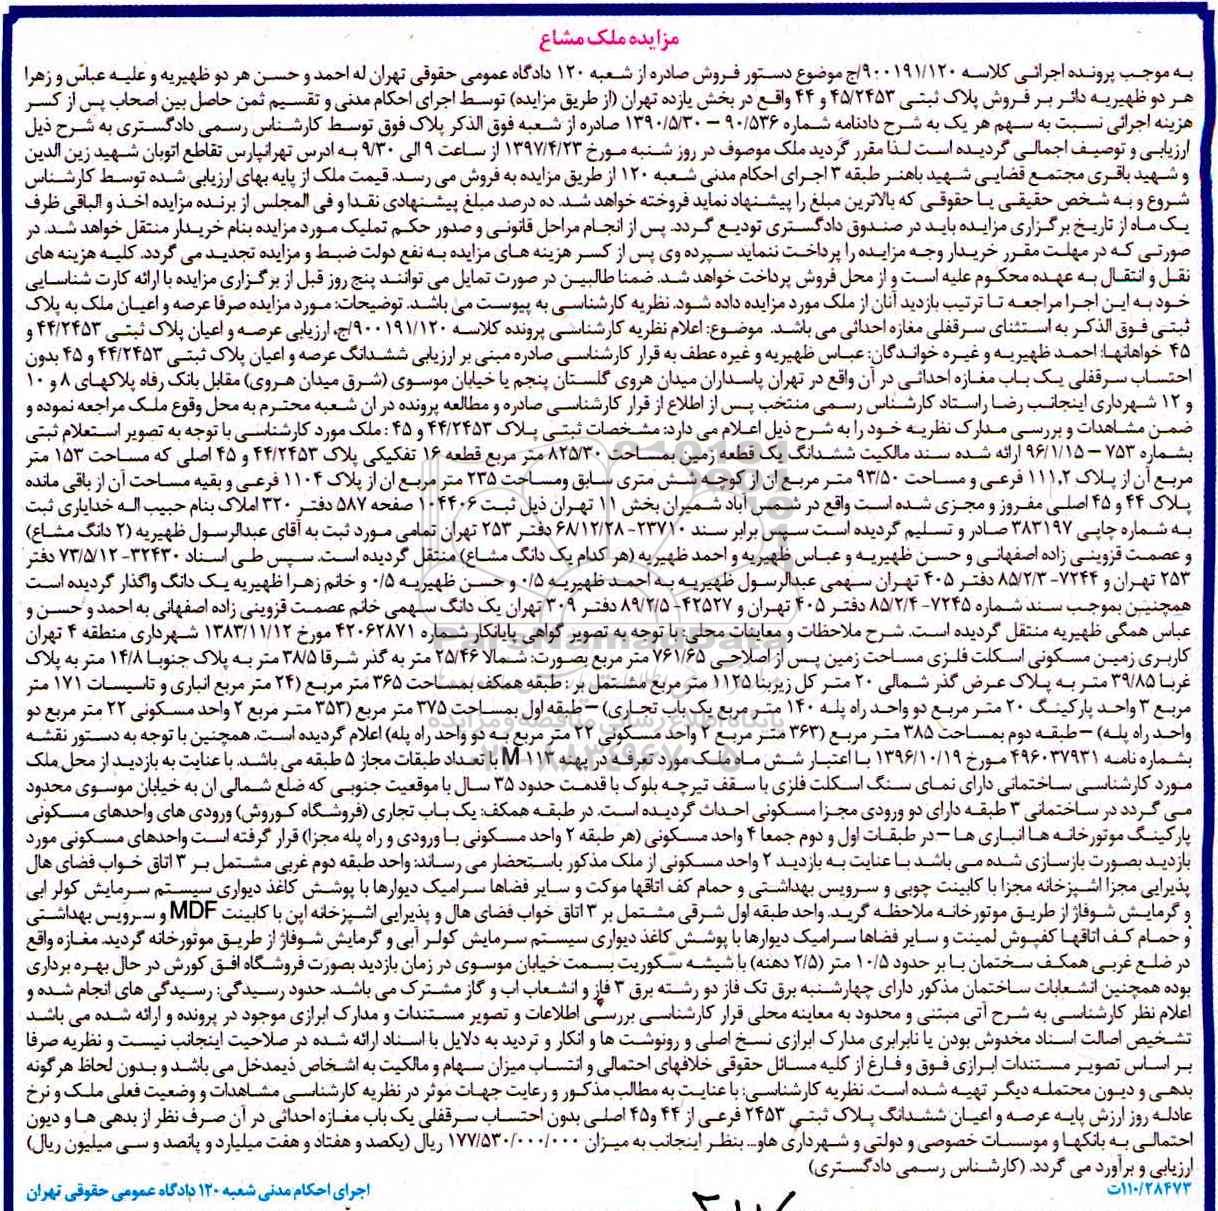 مزایده ملک مشاع
به موجب پرونده اجرائی کلاسه ۹۰۰۱۹۱/۱۲۰/ج موضوع دستور فروش صادره از شعبه ۱۲۰ دادگاه عمومی حقوقی تهران له احمد و حسن هر دو ظهیریه و علیه عباس و زهرا
هر دو ظهیریه دائر بر فروش پلاک ثبتی ۴۵/۲۴۵۳ و ۴۴ واقع در بخش یازده تهران (از طریق مزایده) توسط اجرای احکام مدنی و تقسیم ثمن حاصل بین اصحاب پس از کسر
هزینه اجرائی نسبت به سهم هر یک به شرح دادنامه شماره ۹۰/۵۳۶ – ۱۳۹۰/۵/۳۰ صادره از شعبه فوق الذکر پلاک فوق توسط کارشناس رسمی دادگستری به شرح ذیل
ارزیابی و توصیف اجمالی گردیده است لذا مقرر گردید ملک موصوف در روز شنبه مورخ ۱۳۹۷/۴/۲۳ از ساعت ۹ الی ۹/۳۰ به ادرس تهرانپارس تقاطع اتوبان شهید زین الدین
و شهید باقری مجتمع قضایی شهید باهنر طبقه ۳ اجرای احکام مدنی شعبه ۱۲۰ از طریق مزایده به فروش می رسد. قیمت ملک از پایه بهای ارزیابی شده توسط کارشناس
شروع و به شخص حقیقی یا حقوقی که بالاترین مبلغ را پیشنهاد نماید فروخته خواهد شد. ده درصد مبلغ پیشنهادی نقدا و فی المجلس از برنده مزایده اخذ و الباقی ظرف
یک ماه از تاریخ برگزاری مزایده باید در صندوق دادگستری تودیع گردد. پس از انجام مراحل قانونی و صدور حکم تملیک مورد مزایده بنام خریدار منتقل خواهد شد. در
صورتی که در مهلت مقرر خریدار وجه مزایده را پرداخت ننماید سپرده وی پس از کسر هزینه های مزایده به نفع دولت ضبط و مزایده تجدید می گردد. کلیه هزینه های
نقل و انتقال به عهده محکوم علیه است و از محل فروش پرداخت خواهد شد. ضمنا طالبین در صورت تمایل می توانند پنج روز قبل از برگزاری مزایده با ارائه کارت شناسایی
خود به این اجرا مراجعه تا ترتیب بازدید آنان از ملک مورد مزایده داده شود. نظریه کارشناسی به پیوست می باشد. توضیحات: مورد مزایده صرفا عرصه و اعیان ملک به پلاک
ثبتی فوق الذکر به استثنای سرقفلی مغازه احداثی می باشد. موضوع: اعلام نظریه کارشناسی پرونده کلاسه ۹۰۰۱۹۱/۱۲۰/ج، ارزیابی عرصه و اعیان پلاک ثبتی ۴۴/۲۴۵۳ و
۴۵ خواهانها: احمد ظهیریه و غیره خواندگان: عباس ظهیریه و غیره عطف به قرار کارشناسی صادره مبنی بر ارزیابی ششدانگ عرصه و اعیان پلاک ثبتی ۴۴/۲۴۵۳ و ۴۵ بدون
احتساب سرقفلی یک باب مغازه احداثی در آن واقع در تهران پاسداران میدان هروی گلستان پنجم یا خیابان موسوی (شرق میدان هروی) مقابل بانک رفاه پلاکهای ۸ و ۱۰
و ۱۲ شهرداری اینجانب رضا راستاد کارشناس رسمی منتخب پس از اطلاع از قرار کارشناسی صادره و مطالعه پرونده در ان شعبه محترم به محل وقوع ملک مراجعه نموده و
ضمن مشاهدات و بررسی مدارک نظریه خود را به شرح ذیل اعلام می دارد: مشخصات ثبتی پلاک ۴۴/۲۴۵۳ و ۴۵ : ملک مورد کارشناسی با توجه به تصویر استعلام ثبتی
بشماره ۷۵۳ – ۹۶/۱/۱۵ ارائه شده سند مالکیت ششدانگ یک قطعه زمین بمساحت ۸۲۵/۳۰ متر مربع قطعه ۱۶ تفکیکی پلاک ۴۴/۲۴۵۳ و ۴۵ اصلی که مساحت ۱۵۳ متر
مربع آن از پلاک ۱۱۱,۲ فرعی و مساحت ۹۳/۵۰ متر مربع ان از کوچه شش متری سابق ومساحت ۲۳۵ متر مربع ان از پلاک ۱۱۰۴ فرعی و بقیه مساحت آن از باقی مانده
پلاک ۴۴ و ۴۵ اصلی مفروز و مجزی شده است واقع در شمس آباد شمیران بخش ۱۱ تهران ذیل ثبت ۱۰۴۴۰۶ صفحه ۵۸۷ دفتر ۳۲۰ املاک بنام حبیب اله خدایاری ثبت
به شماره چاپی ۳۸۳۱۹۷ صادر و تسلیم گردیده است سپس برابر سند ۲۳۷۱۰- ۶۸/۱۲/۲۸ دفتر ۲۵۳ تهران تمامی مورد ثبت به آقای عبدالرسول ظهیریه (۲ دانگ مشاع)
و عصمت قزوینی زاده اصفهانی و حسن ظهیریه و عباس ظهیریه و احمد ظهیریه (هر کدام یک دانگ مشاع) منتقل گردیده است. سپس طی اسناد ۳۲۴۳۰- ۷۳/۵/۱۲ دفتر
۲۵۳ تهران و ۷۲۴۴- ۸۵/۲/۳ دفتر ۴۰۵ تهران سهمی عبدالرسول ظهیریه به احمد ظهیریه ۰/۵ و حسن ظهیریه ۰/۵ و خانم زهرا ظهیریه یک دانگ واگذار گردیده است
همچنین بموجب سند شماره ۷۲۴۵- ۸۵/۲/۴ دفتر ۴۰۵ تهران و ۴۲۵۲۷- ۸۹/۲/۵ دفتر ۳۰۹ تهران یک دانگ سهمی خانم عصمت قزوینی زاده اصفهانی به احمد و حسن و
عباس همگی ظهیریه منتقل گردیده است. شرح ملاحظات و معاینات محلی: با توجه به تصویر گواهی پایانکار شماره ۴۲۰۶۲۸۷۱ مورخ ۱۳۸۳/۱۱/۱۲ شهرداری منطقه ۴ تهران
کاربری زمین مسکونی اسکلت فلزی مساحت زمین پس از اصلاحی ۷۶۱/۶۵ متر مربع بصورت: شمالا ۲۵/۴۶ متر به گذر شرقا ۳۸/۵ متر به پلاک جنوبا ۱۴/۸ متر به پلاک
غربا ۳۹/۸۵ متر به پلاک عرض گذر شمالی ۲۰ متر کل زیربنا ۱۱۲۵ متر مربع مشتمل بر: طبقه همکف بمساحت ۳۶۵ متر مربع (۲۴ متر مربع انباری و تاسیسات ۱۷۱ متر
مربع ۳ واحد پارکینگ ۲۰ متر مربع دو واحد راه پله ۱۴۰ متر مربع یک باب تجاری) – طبقه اول بمساحت ۳۷۵ متر مربع (۳۵۳ متر مربع ۲ واحد مسکونی ۲۲ متر مربع دو
واحد راه پله) – طبقه دوم بمساحت ۳۸۵ متر مربع (۳۶۳ متر مربع ۲ واحد مسکونی ۲۲ متر مربع به دو واحد راه پله) اعلام گردیده است. همچنین با توجه به دستور نقشه
بشماره نامه ۴۹۶۰۳۷۹۳۱ مورخ ۱۳۹۶/۱۰/۱۹ با اعتبار شش ماه ملک مورد تعرفه در پهنه M ۱۱۳ با تعداد طبقات مجاز ۵ طبقه می باشد. با عنایت به بازدید از محل ملک
مورد کارشناسی ساختمانی دارای نمای سنگ اسکلت فلزی با سقف تیرچه بلوک با قدمت حدود ۳۵ سال با موقعیت جنوبی که ضلع شمالی ان به خیابان موسوی محدود
می گردد در ساختمانی ۳ طبقه دارای دو ورودی مجزا مسکونی احداث گردیده است. در طبقه همکف: یک باب تجاری (فروشگاه کوروش) ورودی های واحدهای مسکونی
پارکینگ موتورخانه ها انباری ها – در طبقات اول و دوم جمعا ۴ واحد مسکونی (هر طبقه ۲ واحد مسکونی با ورودی و راه پله مجزا) قرار گرفته است واحدهای مسکونی مورد
بازدید بصورت بازسازی شده می باشد با عنایت به بازدید ۲ واحد مسکونی از ملک مذکور باستحضار می رساند: واحد طبقه دوم غربی مشتمل بر ۳ اتاق خواب فضای هال
پذیرایی مجزا اشپزخانه مجزا با کابینت چوبی و سرویس بهداشتی و حمام کف اتاقها موکت و سایر فضاها سرامیک دیوارها با پوشش کاغذ دیواری سیستم سرمایش کولر ابی
و گرمایش شوفاژ از طریق موتورخانه ملاحظه گرید. واحد طبقه اول شرقی مشتمل بر ۳ اتاق خواب فضای هال و پذیرایی اشپزخانه اپن با کابینت MDF و سرویس بهداشتی
و حمام کف اتاقها کفپوش لمینت و سایر فضاها سرامیک دیوارها با پوشش کاغذ دیواری سیستم سرمایش کولر آبی و گرمایش شوفاژ از طریق موتورخانه گردید. مغازه واقع
در ضلع غربی همکف سختمان با بر حدود ۱۰/۵ متر (۲/۵ دهنه) با شیشه سکوریت بسمت خیابان موسوی در زمان بازدید بصورت فروشگاه افق کورش در حال بهره برداری
بوده همچنین انشعابات ساختمان مذکور دارای چهارشنبه برق تک فاز دو رشته برق ۳ فاز و انشعاب اب و گاز مشترک می باشد. حدود رسیدگی: رسیدگی های انجام شده و
اعلام نظر کارشناسی به شرح آتی مبتنی و محدود به معاینه محلی قرار کارشناسی بررسی اطلاعات و تصویر مستندات و مدارک ابرازی موجود در پرونده و ارائه شده می باشد
تشخیص اصالت اسناد مخدوش بودن یا نابرابری مدارک ابرازی نسخ اصلی و رونوشت ها و انکار و تردید به دلایل با اسناد ارائه شده در صلاحیت اینجانب نیست و نظریه صرفا
بر اساس تصویر مستندات ابرازی فوق و فارغ از کلیه مسائل حقوقی خلافهای احتمالی و انتساب میزان سهام و مالکیت به اشخاص ذیمدخل می باشد و بدون لحاظ هرگونه
بدهی و دیون محتمله دیگر تهیه شده است. نظریه کارشناسی: با عنایت به مطالب مذکور و رعایت جهات موثر در نظریه کارشناسی مشاهدات و وضعیت فعلی ملک و نرخ
عادله روز ارزش پایه عرصه و اعیان ششدانگ پلاک ثبتی ۲۴۵۳ فرعی از ۴۴ و۴۵ اصلی بدون احتساب سرقفلی یک باب مغازه احداثی در آن صرف نظر از بدهی ها و دیون
احتمالی به بانکها و موسسات خصوصی و دولتی و شهرداری هاو... بنظر اینجانب به میزان ۱۷۷/۵۳۰/۰۰۰/۰۰۰ ریال (یکصد و هفتاد و هفت میلیارد و پانصد و سی میلیون ریال)
ارزیابی و برآورد می گردد. (کارشناس رسمی دادگستری)
۱۱۰/۲۸۴۷۳ت
اجرای احکام مدنی شعبه ۱۲۰ دادگاه عمومی حقوقی تهران
ParsNamadData
پایگاه اطلاع رسانی مناقصه و مزایده